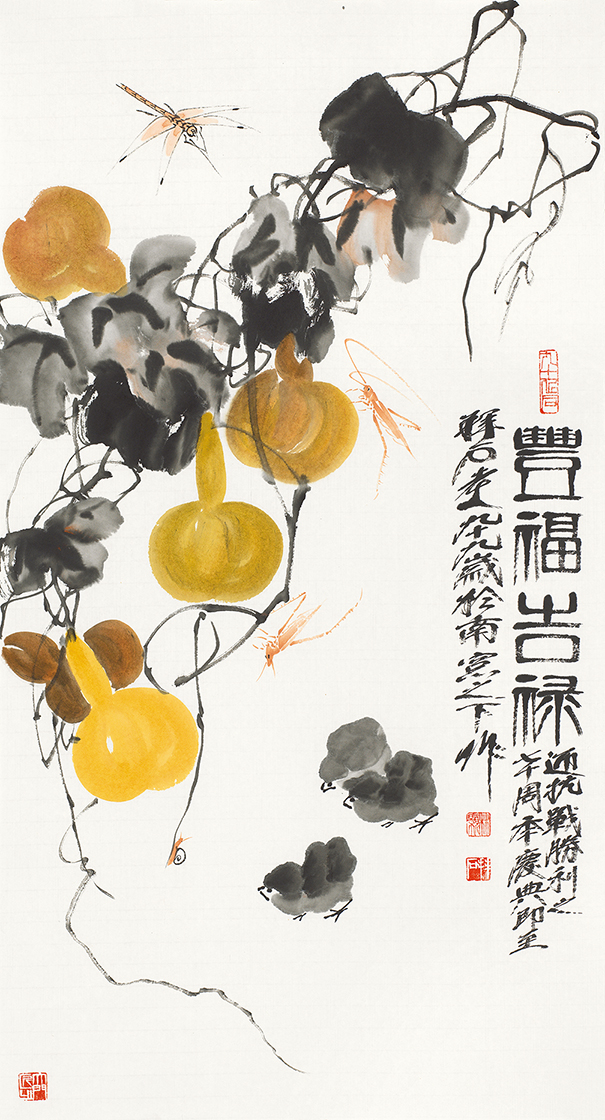 豐福吉禄
迎抗戰勝利
周年慶典即至
石老人九十九歲於南窓之下作